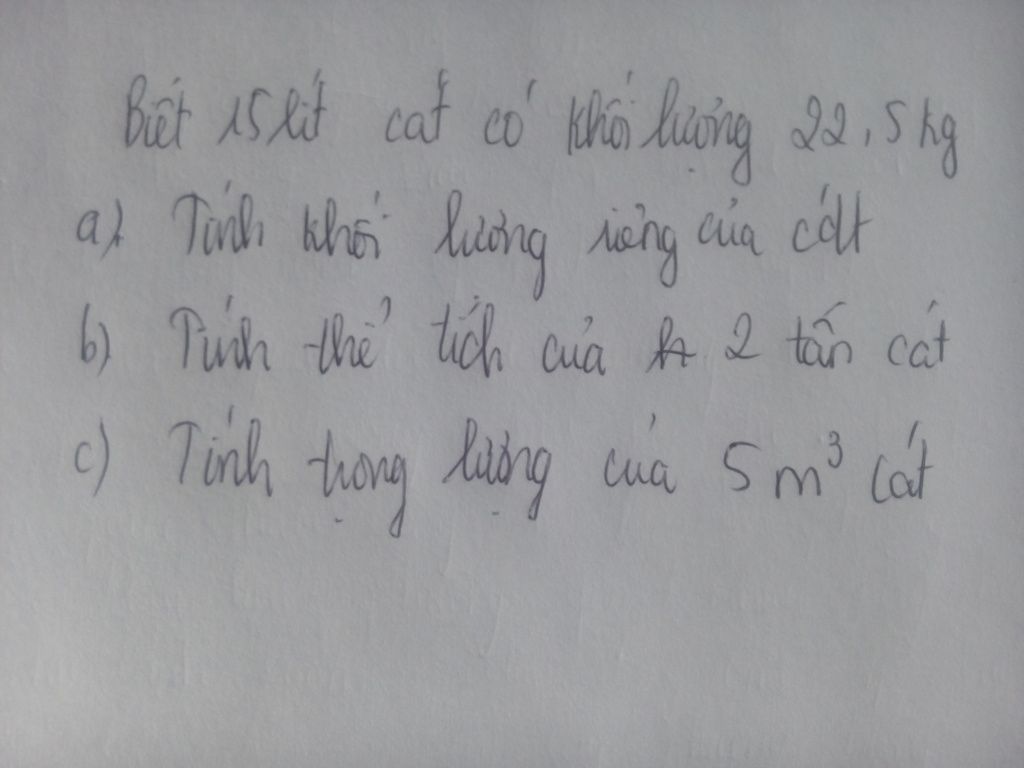 Biết 15 lít cát có khối lượng 22,5 kg
a) Tính khối lượng riêng của cát
b) Tính thể tích của 2 tấn cát
c) Tính trọng lượng của 5 m³ cát